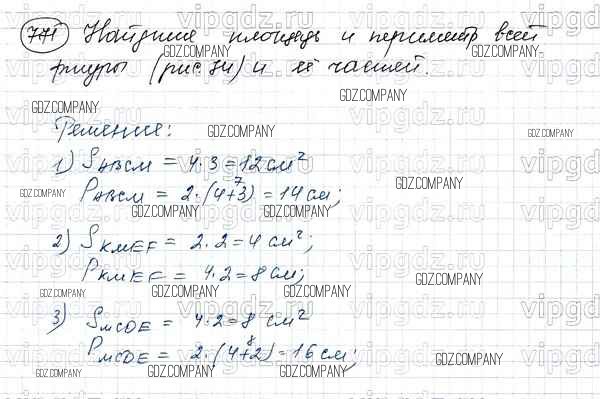 771 Найдите площадь и периметр всей
фигуры (рис. 74) и её частей.
Решение:
1) SABCM = 4·3 = 12 см²
7
PABCM = 2·(4+3) = 14 см;
2) SKMEF = 2·2 = 4 см²;
PKMEF = 4·2 = 8 см;
3) SMCDE = 4·2 = 8 см²
8
PMCDE = 2·(4+2) = 16 см;
GDZ.COMPANY
vipgdz.ru